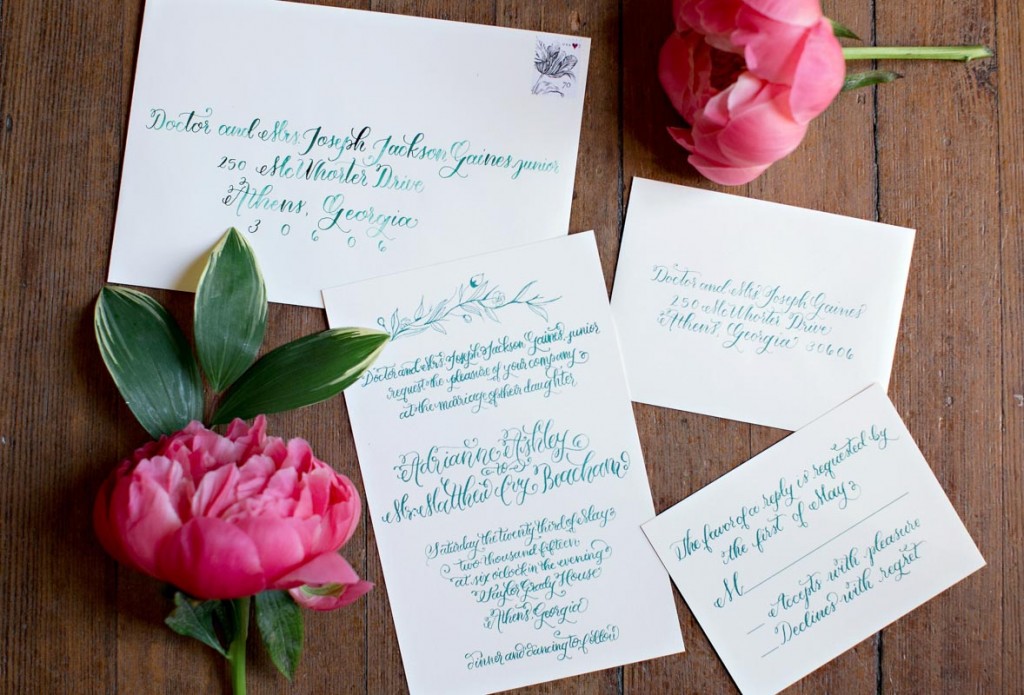 Doctor and Mrs. Joseph Jackson Gaines, junior
250 McWhorter Drive
Athens, Georgia
30606
70
Doctor and Mrs. Joseph Jackson Gaines, junior
request the pleasure of your company
at the marriage of their daughter
Adrianne Ashley
to
Mr. Matthew Ivy Beacham
Saturday the twenty third of May
two thousand fifteen
at six o'clock in the evening
Taylor Grady House
Athens, Georgia
dinner and dancing to follow
Doctor and Mrs. Joseph Gaines
250 McWhorter Drive
Athens, Georgia 30606
The favor of a reply is requested by
the first of May
M
Accepts with pleasure
Declines with regret